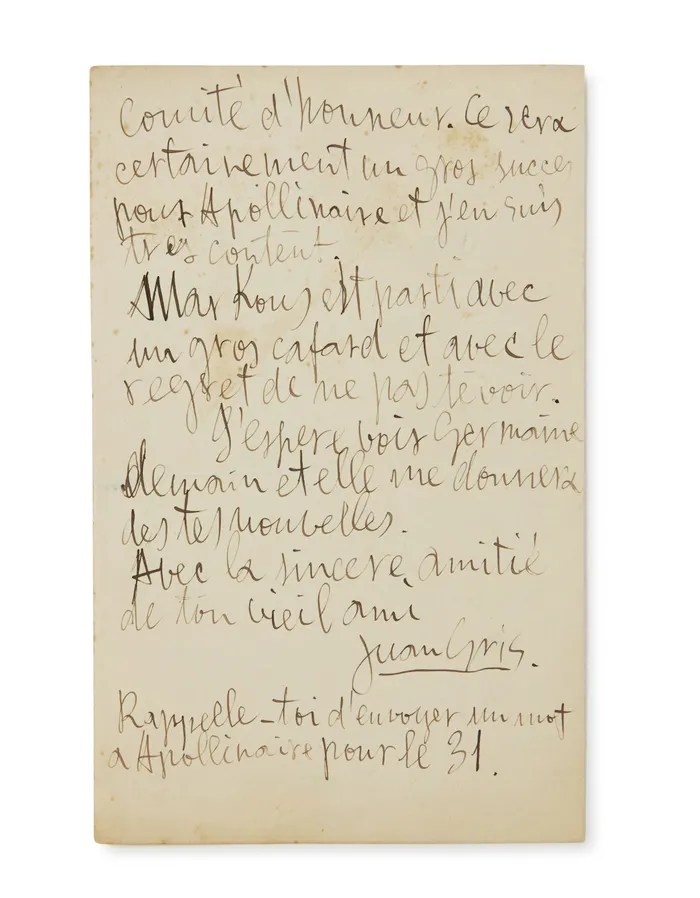 Comité d'honneur. Ce sera
certainement un gros succes
pour Apollinaire et j'en suis
tres content.
Max Kous est parti avec
un gros cafard et avec le
regret de ne pas te voir.
J'espere voir Germaine
demain et elle me donnera
des tes nouvelles.
Avec la sincere amitié
de ton vieil ami
Juan Gris.
Rappelle-toi d'envoyer un mot
a Apollinaire pour le 31.